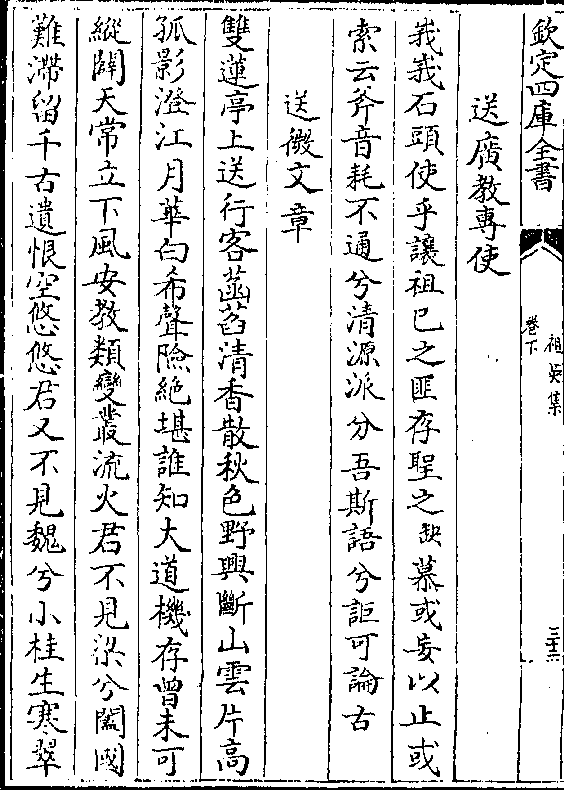 欽定四庫全書
祖英集
卷下
三十六
送廣教專使
峩峩石頭使乎讓祖已之匪存聖之缺慕或妄以止或
索云斧音耗不通兮清源派分吾斯語兮詎可論古
送微文章
雙蓮亭上送行客菡萏清香散秋色野興斷山雲片高
孤影澄江月華白希聲險絶堪誰知大道機存曾未可
縱闢天常立下風安教類變叢流火君不見梁兮闔國
難滯留千古遺恨空悠悠君又不見魏兮小桂生寒翠